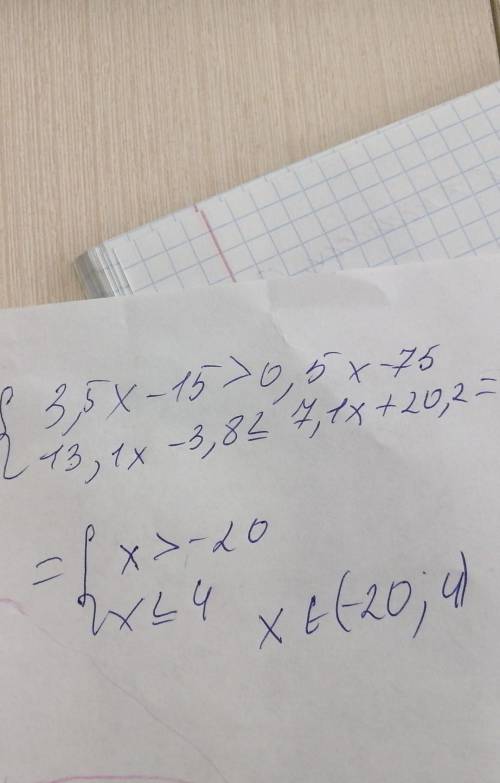 { 3,5x - 15 > 0,5x - 75
13,1x - 3,8 ≤ 7,1x + 20,2 =
= { x > -20
x ≤ 4 x ∈ (-20; 4]